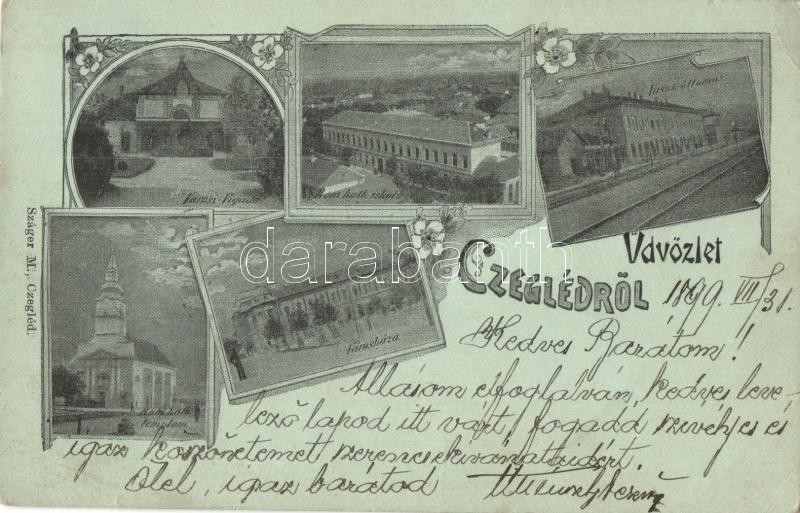 Városi Vigadó
Rom. kath. iskola
Vasúti állomás
Rom. kath.
templom
Városháza
Száger M., Czegléd.
darabanth
Üdvözlet
CZEGLÉDRŐL
1899. VII/31.
Kedves Barátom!
Állásom elfoglalván, kedves leve-
lező lapod itt várt, fogadd szívélyes és
igaz köszönetemet szerencsekívánataidért.
Ölel, igaz barátod